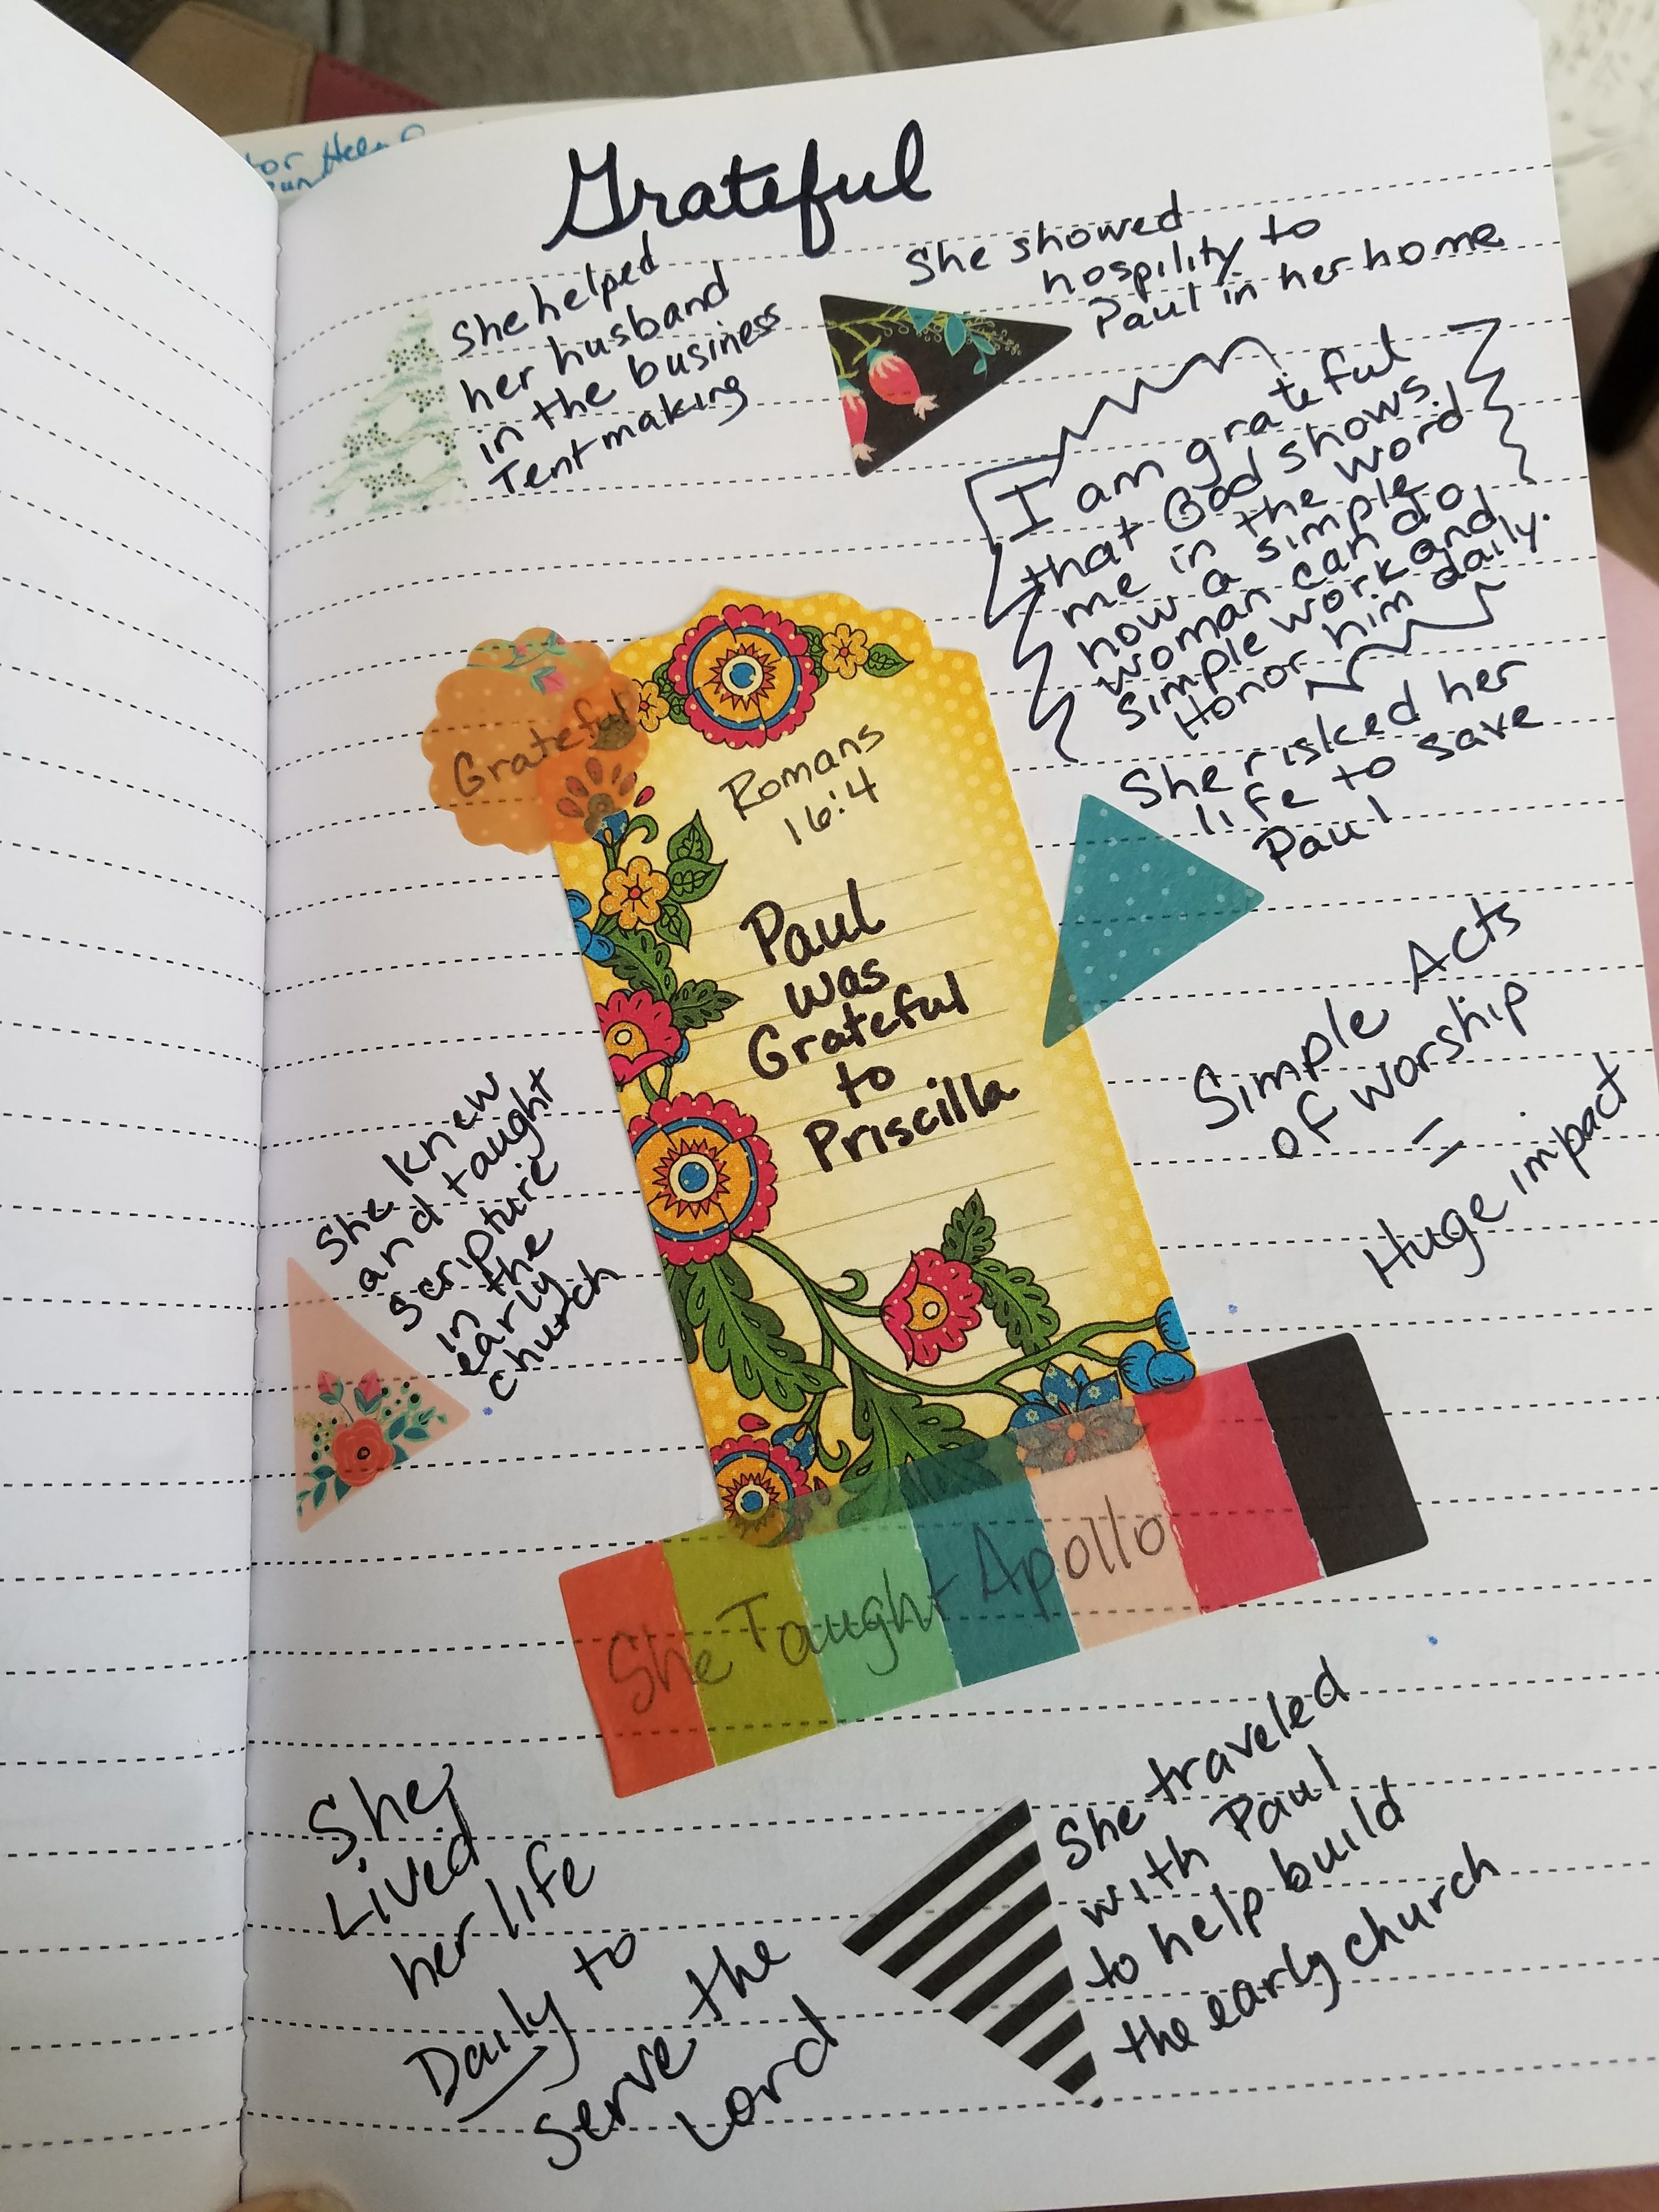 Grateful
She helped
her husband
in the business
Tentmaking
She showed
hospility to
Paul in her home
I am grateful
that God shows
me in the word
how a simple
woman can do
simple work and
Honor him daily.
Grateful
Romans
16:4
Paul
was
Grateful
to
Priscilla
She risked her
life to save
Paul
Simple Acts
of worship
=
Huge impact
She knew
and taught
scripture
in the
early
church
She Taught Apollo
She
Lived
her life
Daily to
serve the
Lord
She traveled
with Paul
to help build
the early church